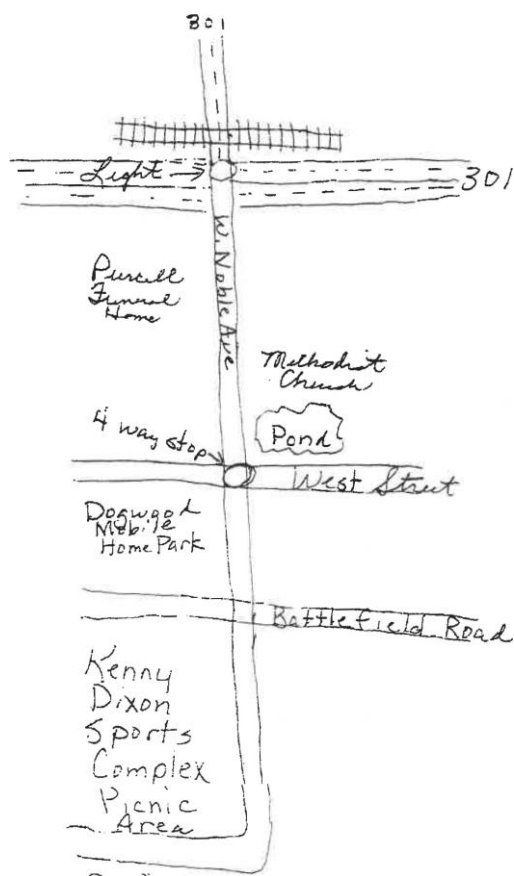 301
Light
301
W. Noble Ave
Purcell
Funeral
Home
Methodist
Church
4 way stop
Pond
West Street
Dogwood
Mobile
Home Park
Battlefield Road
Kenny
Dixon
Sports
Complex
Picnic
Area